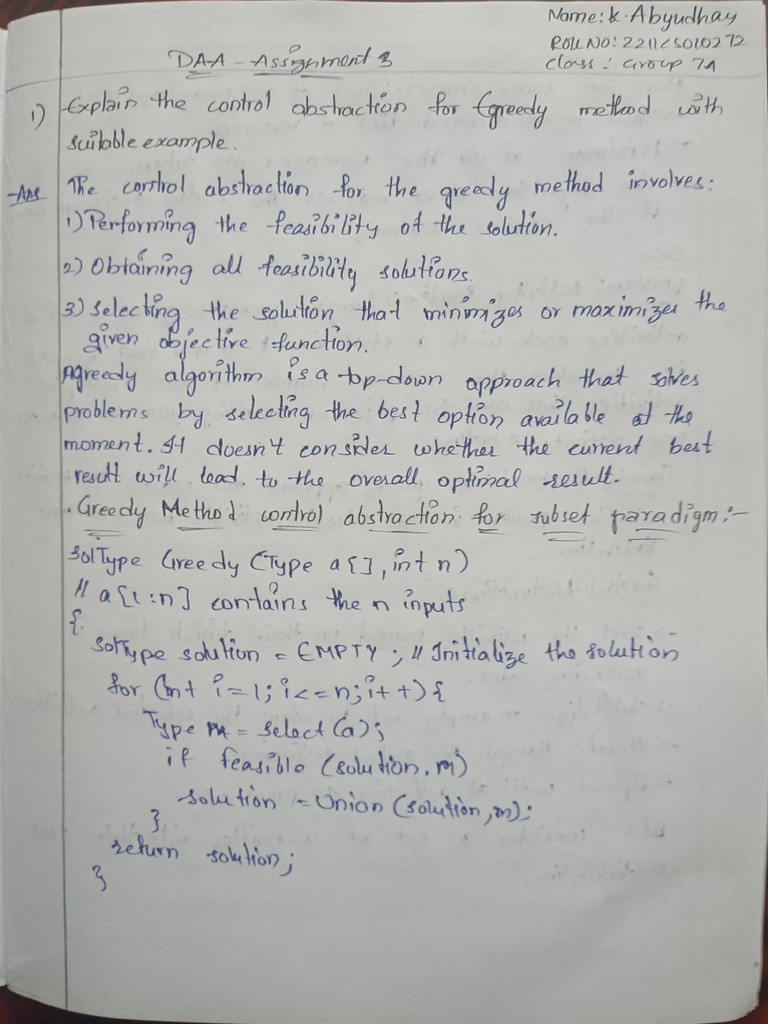 Name: K. Abyudhay
ROLL NO: 2211CS010272
DAA - Assignment 3
Class: Group 7A
1) Explain the control abstraction for Greedy method with
suitable example.
Ans The control abstraction for the greedy method involves:
1) Performing the feasibility of the solution.
2) Obtaining all feasibility solutions.
3) Selecting the solution that minimizes or maximizes the
given objective function.
A greedy algorithm is a top-down approach that solves
problems by selecting the best option available at the
moment. It doesn't consider whether the current best
result will lead. to the overall optimal result.
. Greedy Method control abstraction for subset paradigm:-
SolType Greedy (Type a[], int n)
// a[1:n] contains the n inputs
{
SolType solution = EMPTY; // Initialize the solution
for (int i=1; i<=n; i++) {
Type m = select (a);
if feasible (solution, m)
solution = Union (solution, m);
}
return solution;
}